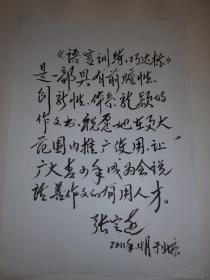 《语言训练巧达标》
是一部具有前瞻性、
创新性、体系新颖的
作文书，祝愿她在更大
范围内推广使用，让
广大青少年成为会说
话善作文的有用人才。
张定远
2011年4月于北京